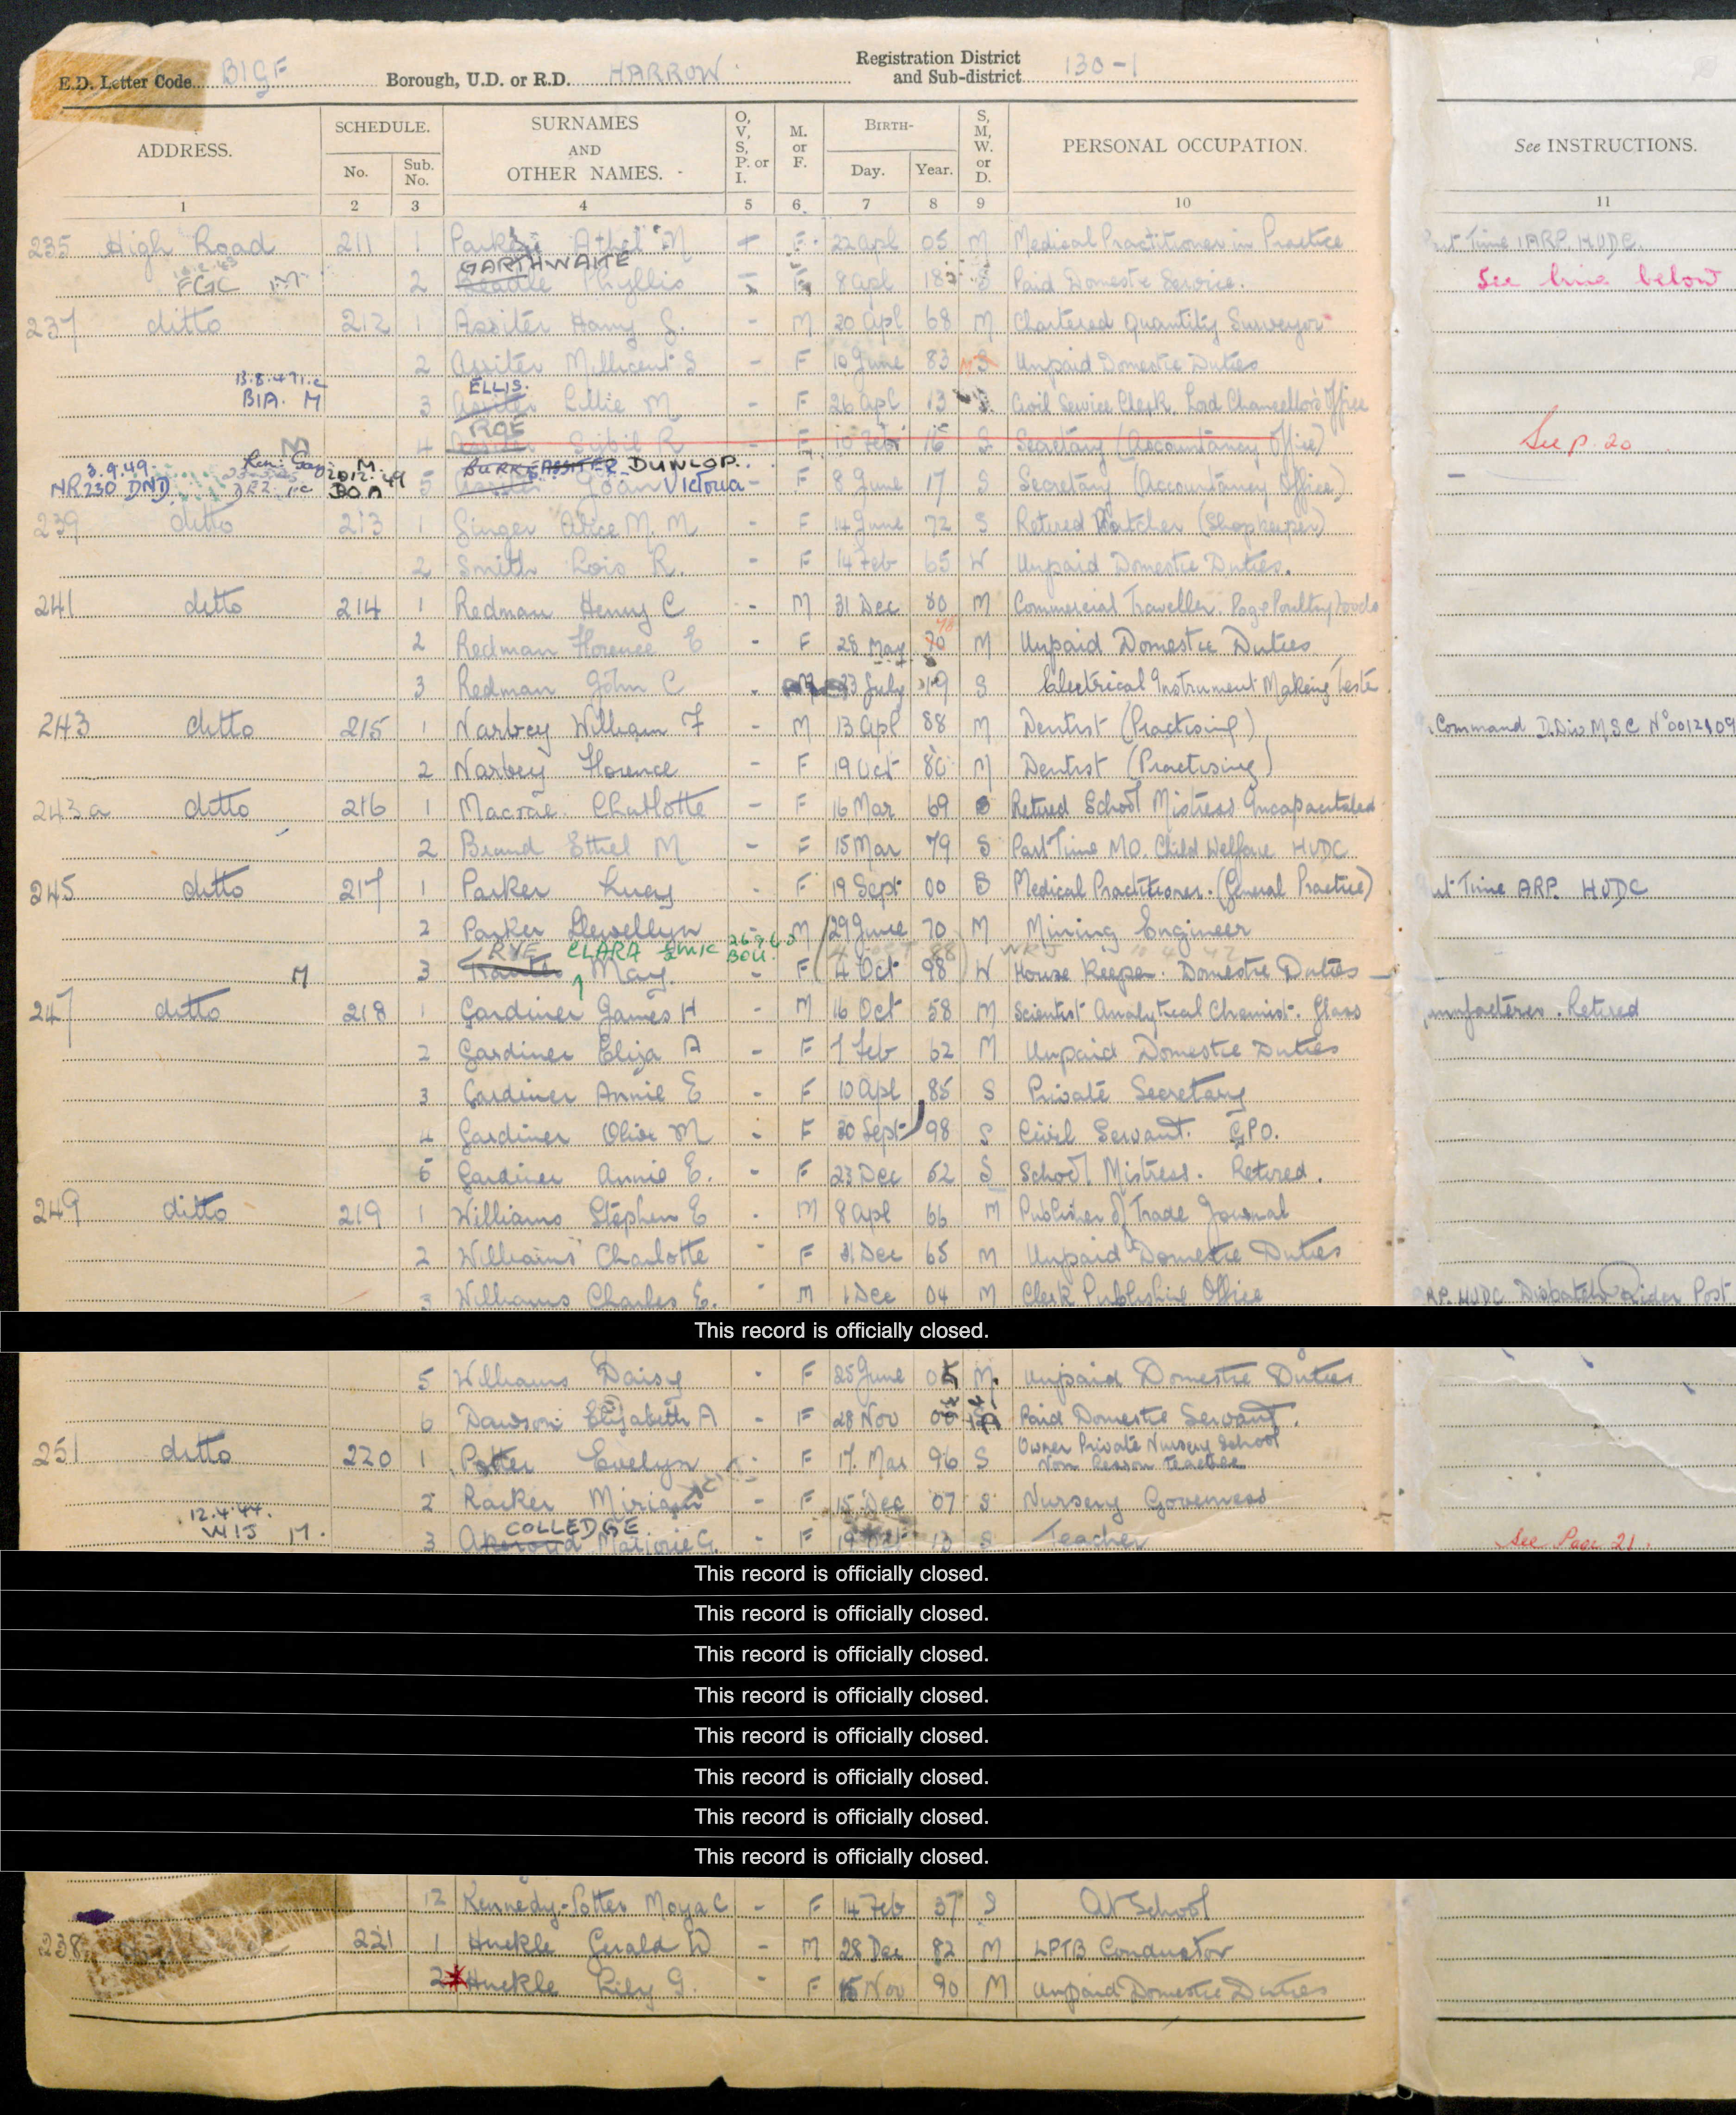 E.D. Letter Code BIGF Borough, U.D. or R.D. HARROW Registration District and Sub-district 130-1
ADDRESS. SCHEDULE. No. Sub. No. SURNAMES AND OTHER NAMES. O, V, S, P. or I. M. or F. BIRTH- Day. Year. S, M, W. or D. PERSONAL OCCUPATION. See INSTRUCTIONS.
1 2 3 4 5 6 7 8 9 10 11
235 High Road 211 1 Athel M - F 22 Apl 05 M Medical Practitioner in Practice Part Time ARP. HUDC.
GARTHWAITE
FGC M 2 Phyllis - F 8 Apl S Paid Domestic Service. See line below
237 ditto 212 1 Assiter Harry S. - M 20 Apl 68 M Chartered Quantity Surveyor
2 Assiter Millicent S - F 10 June 83 Unpaid Domestic Duties
13.8.47 ELLIS.
BIA. M 3 Assiter Lillie M - F 26 Apl 13 S Civil Service Clerk Lord Chancellor's Office
ROE
M 4 Assiter Sibil R - F 10 Feb 16 S Secretary (Accountancy Office) See p. 20
3.9.49. M BURKE ASSITER DUNLOP.
NR230 DND 20.12.49 BOA 5 Assiter Joan Victoria - F 8 June 17 S Secretary (Accountancy Office) -
239 ditto 213 1 Singer Alice M. M - F 14 June 72 S Retired (Shopkeeper)
2 Smith Lois R. - F 14 Feb 65 W Unpaid Domestic Duties.
241 ditto 214 1 Redman Henry C - M 31 Dec 80 M Commercial Traveller. Poultry Foods
2 Redman Florence E - F 28 May M Unpaid Domestic Duties
3 Redman John C - M 23 July 19 S Electrical Instrument Making Teste
243 ditto 215 1 Narbey William F - M 13 Apl 88 M Dentist (Practising) Command D.Div M.S.C No0012109
2 Narbey Florence - F 19 Oct 80 M Dentist (Practising)
243a ditto 216 1 Macrae Charlotte - F 16 Mar 69 S Retired School Mistress Incapacitated
2 Brand Ethel M - F 15 Mar 79 S Part Time MO. Child Welfare HUDC
245 ditto 217 1 Parker Lucy - F 19 Sept 00 S Medical Practitioner. (General Practice) Part Time ARP. HUDC
2 Parker Llewellyn - M 29 June 70 M Mining Engineer
RYE CLARA BOU.
M 3 May. - F 4 Oct 98 W House Keeper. Domestic Duties
247 ditto 218 1 Gardiner James H - M 16 Oct 58 M Scientist Analytical Chemist. Glass manufacturers. Retired
2 Gardiner Eliza A - F 7 Feb 62 M Unpaid Domestic Duties
3 Gardiner Annie E - F 10 Apl 85 S Private Secretary
4 Gardiner Olive M - F 30 Sept 98 S Civil Servant. GPO.
5 Gardiner Annie E. - F 23 Dec 62 S School Mistress. Retired.
249 ditto 219 1 Williams Stephen E - M 8 Apl 66 M Publisher of Trade Journal
2 Williams Charlotte - F 31 Dec 65 M Unpaid Domestic Duties
3 Williams Charles E. - M 1 Dec 04 M Clerk Publishing Office ARP. HUDC Dispatch Rider Post
This record is officially closed.
5 Williams Daisy - F 25 June M. Unpaid Domestic Duties
6 Dawson Elizabeth A - F 28 Nov Paid Domestic Servant.
Owner Private Nursery School
251 ditto 220 1 Potter Evelyn - F 17. Mar 96 S Non Lesson teacher
2 Racker Miriam - F 15 Dec 07 S Nursery Governess
12.4.44. COLLEDGE.
WIJ M. 3 Marjorie G. - F 19 13 S Teacher See Page 21.
This record is officially closed.
This record is officially closed.
This record is officially closed.
This record is officially closed.
This record is officially closed.
This record is officially closed.
This record is officially closed.
This record is officially closed.
12 Kennedy-Potter Moya C - F 14 Feb 37 S At School
238 221 1 Huckle Gerald W - M 28 Dec 82 M LPTB Conductor
2 Huckle Lily G. - F 15 Nov 90 M Unpaid Domestic Duties